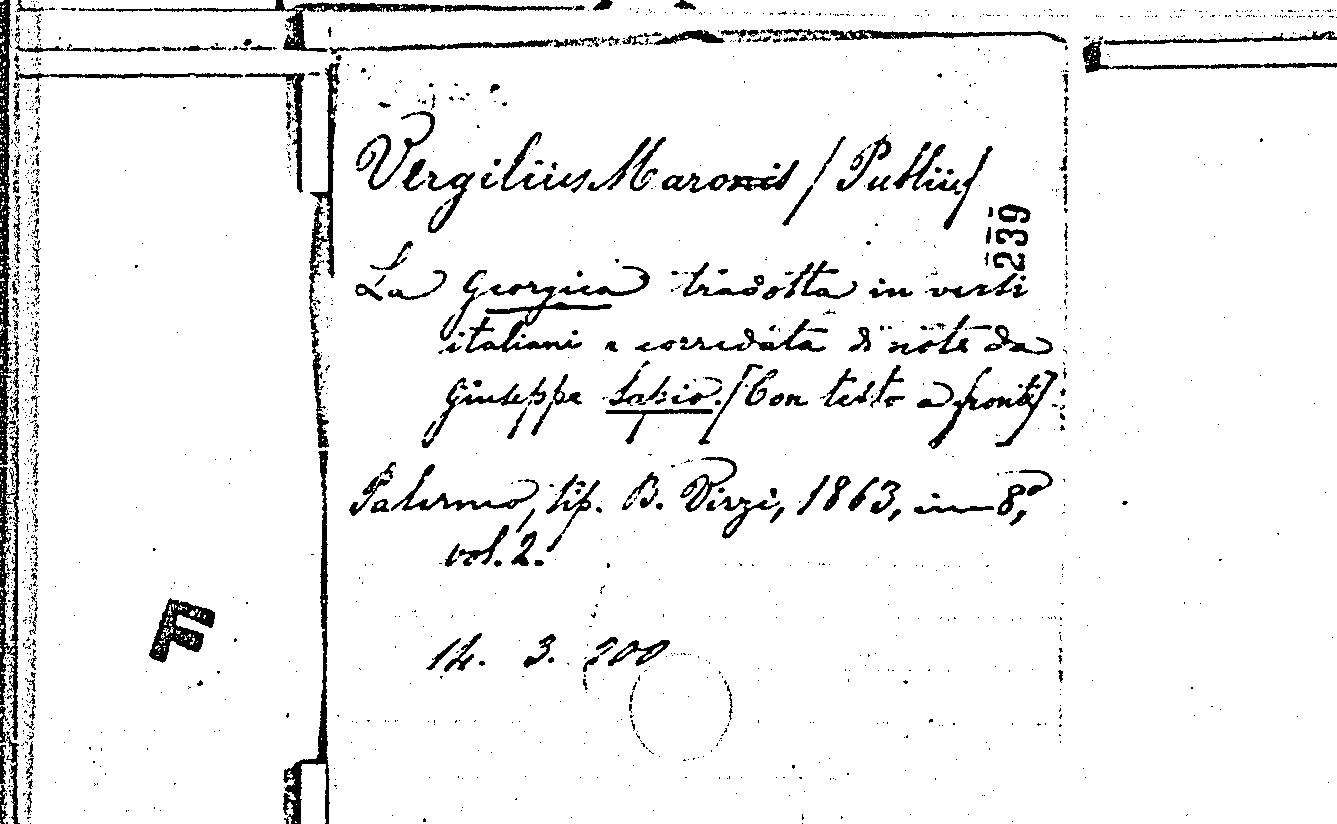 Vergilius Maronis / Publius /
239
La Georgica tradotta in versi
italiani e corredata di note da
Giuseppe Sapio. [Con testo a fronte]
Palermo, tip. B. Virzì, 1863, in-8°,
vol. 2.
F
14. 3. 200